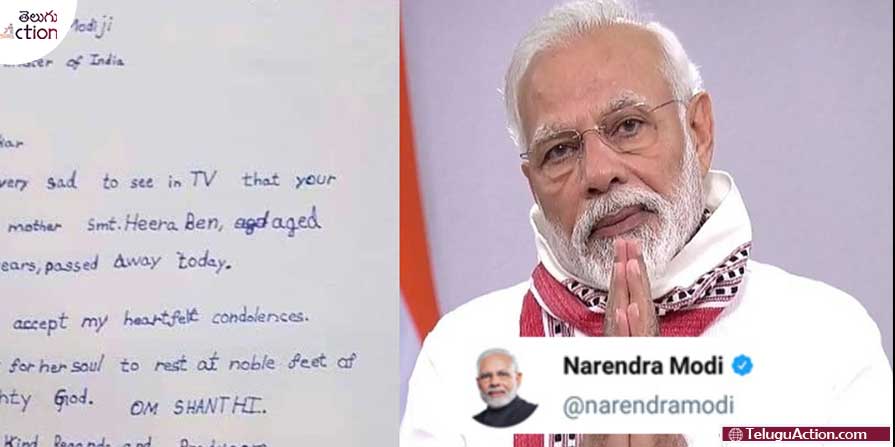 తెలుగు
action
Modiji
of India
very sad to see in TV that your
mother Smt. Heera Ben, aged
ears, passed Away today.
accept my heartfelt condolences.
for her soul to rest at noble feet of
hty God. OM SHANTHI.
Kind Regards and
Narendra Modi
@narendramodi
TeluguAction.com